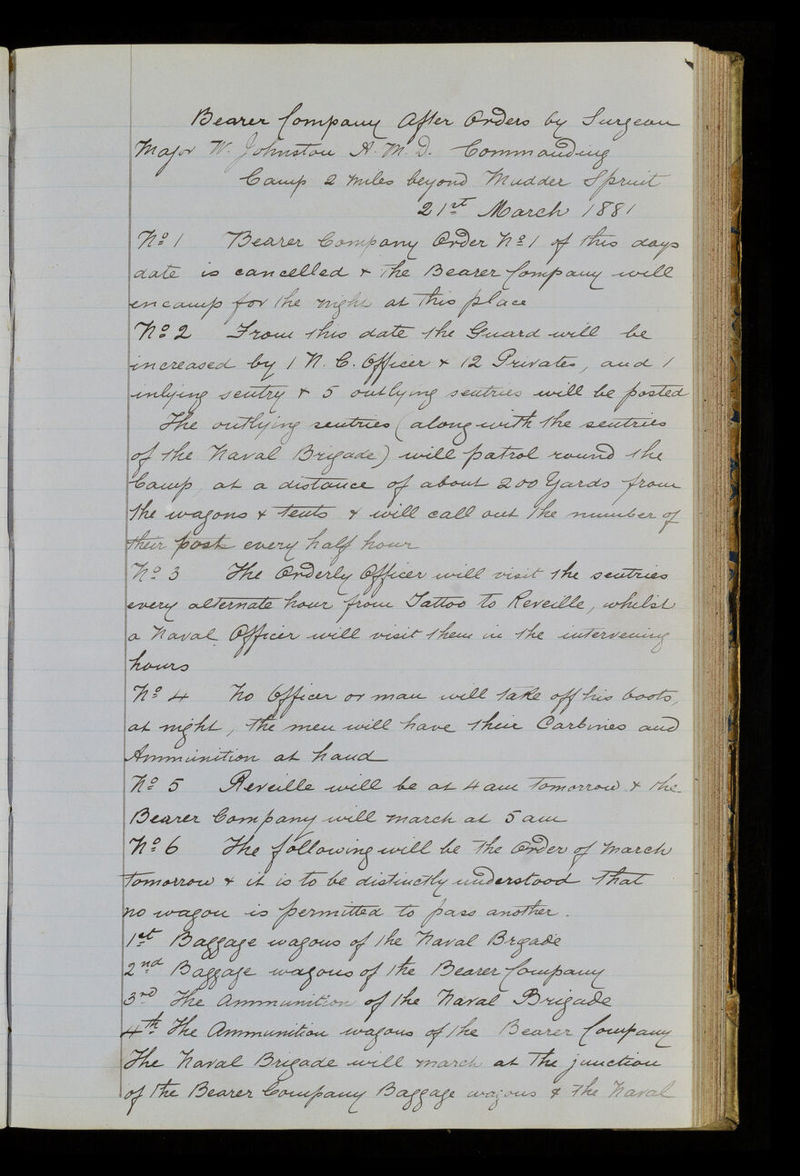 Bearer Company After Orders by Surgeon
Major W. Johnston A. M. D. Commanding
Camp 2 Miles beyond Mudder Spruit
21st March 1881
No 1 Bearer Company Order No 1 of this days
date is cancelled & the Bearer Company will
encamp for the night at this place
No 2 From this date the Guard will be
increased by 1 N. C. Officer & 12 Privates, and 1
inlying sentry & 5 outlying sentries will be posted
The outlying sentries (along with the sentries
of the Naval Brigade) will patrol round the
Camp, at a distance of about 200 Yards from
the wagons & tents & will call out the number of
their post every half hour
No 3 The Orderly Officer will visit the sentries
every alternate hour from Tattoo to Reveille, whilst
a Naval Officer will visit them in the intervening
hours
No 4 No Officer or man will take off his boots,
at night, the men will have their Carbines and
Ammunition at hand
No 5 Reveille will be at 4 am tomorrow & the
Bearer Company will march at 5 am
No 6 The following will be the Order of March
tomorrow & it is to be distinctly understood that
no wagon is permitted to pass another.
1st Baggage wagons of the Naval Brgade
2nd Baggage wagons of the Bearer Company
3rd The ammunition of the Naval Brigade
4th The Ammunition wagons of the Bearer Company
The Naval Brigade will march at the junction
of the Bearer Company Baggage wagons & the Naval